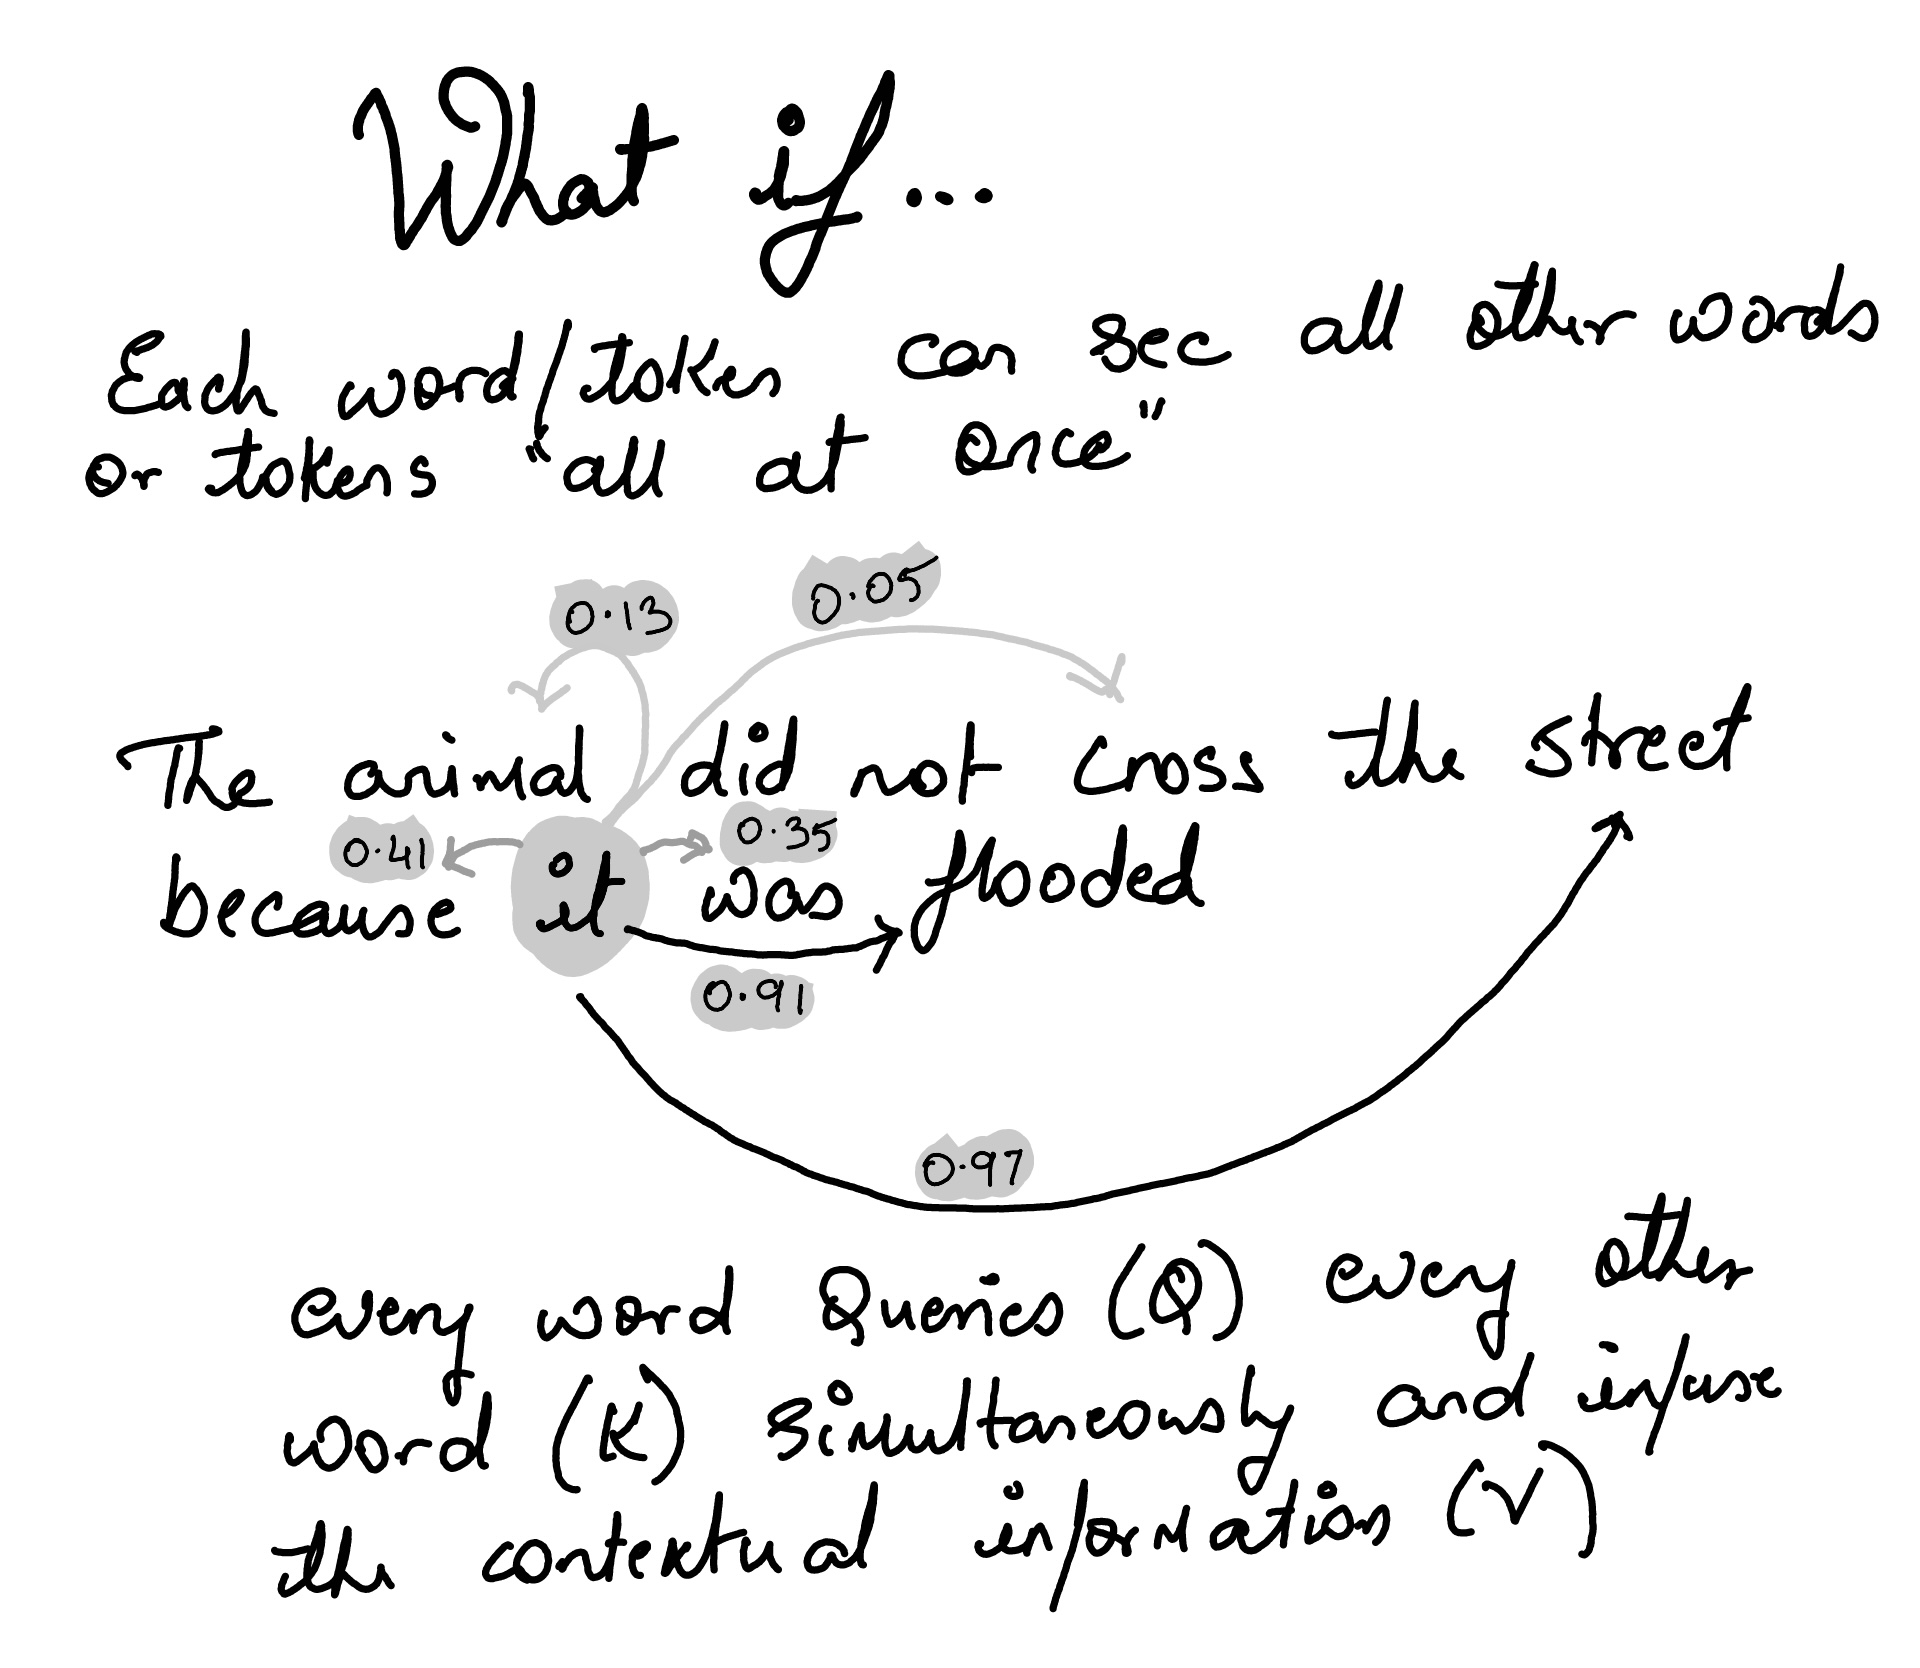 What if...
Each word/token can see all other words
or tokens "all at once"
0.13 0.05
The animal did not cross the street
0.41 0.35
because it was flooded
0.91
0.97
every word Queries (Q) every other
word (K) simultaneously and infuse
the contextual information (V)